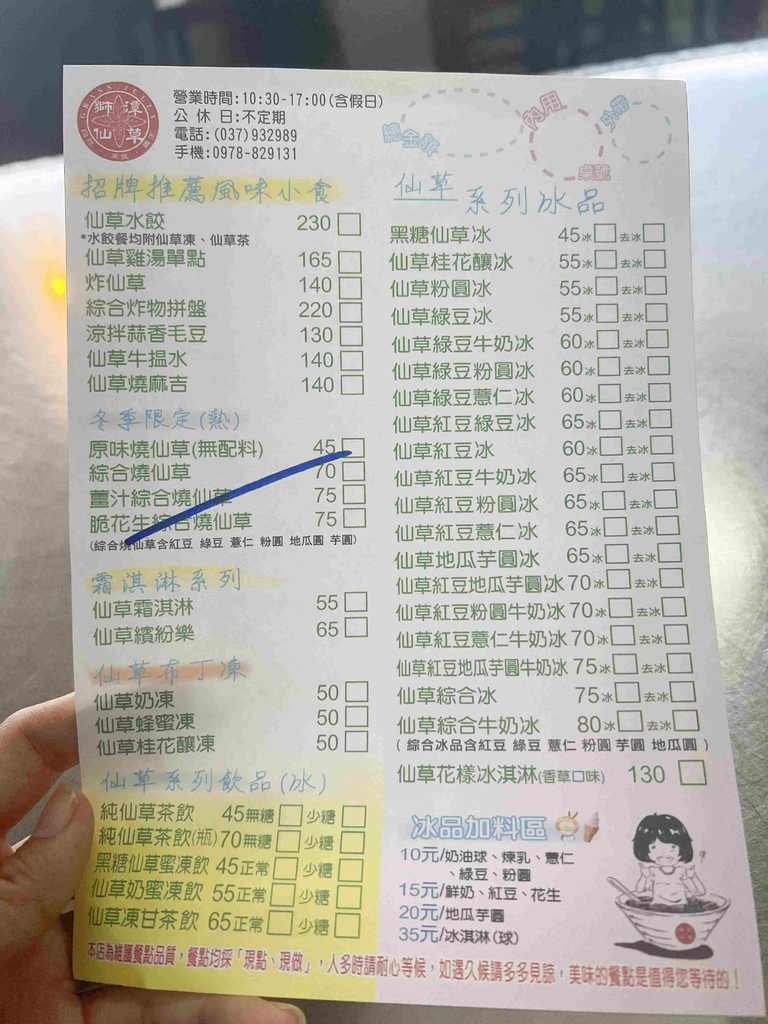 GRASS JELLY
獅潭
仙草
營業時間:10:30-17:00(含假日)
公 休 日:不定期
電話:(037)932989
手機:0978-829131
總金額
內用
桌號
外帶
招牌推薦風味小食
仙草水餃 230
*水餃餐均附仙草凍、仙草茶
仙草雞湯單點 165
炸仙草 140
綜合炸物拼盤 220
涼拌蒜香毛豆 130
仙草牛搵水 140
仙草燒麻吉 140
冬季限定(熱)
原味燒仙草(無配料) 45
綜合燒仙草 70
薑汁綜合燒仙草 75
脆花生綜合燒仙草 75
(綜合燒仙草含紅豆 綠豆 薏仁 粉圓 地瓜圓 芋圓)
霜淇淋系列
仙草霜淇淋 55
仙草繽紛樂 65
仙草布丁凍
仙草奶凍 50
仙草蜂蜜凍 50
仙草桂花釀凍 50
仙草系列飲品(冰)
純仙草茶飲 45無糖 少糖
純仙草茶飲(瓶)70無糖 少糖
黑糖仙草蜜凍飲 45正常 少糖
仙草奶蜜凍飲 55正常 少糖
仙草凍甘茶飲 65正常 少糖
仙草系列冰品
黑糖仙草冰 45冰 去冰
仙草桂花釀冰 55冰 去冰
仙草粉圓冰 55冰 去冰
仙草綠豆冰 55冰 去冰
仙草綠豆牛奶冰 60冰 去冰
仙草綠豆粉圓冰 60冰 去冰
仙草綠豆薏仁冰 60冰 去冰
仙草紅豆綠豆冰 65冰 去冰
仙草紅豆冰 60冰 去冰
仙草紅豆牛奶冰 65冰 去冰
仙草紅豆粉圓冰 65冰 去冰
仙草紅豆薏仁冰 65冰 去冰
仙草地瓜芋圓冰 65冰 去冰
仙草紅豆地瓜芋圓冰 70冰 去冰
仙草紅豆粉圓牛奶冰 70冰 去冰
仙草紅豆薏仁牛奶冰 70冰 去冰
仙草紅豆地瓜芋圓牛奶冰 75冰 去冰
仙草綜合冰 75冰 去冰
仙草綜合牛奶冰 80冰 去冰
( 綜合冰品含紅豆 綠豆 薏仁 粉圓 芋圓 地瓜圓 )
仙草花樣冰淇淋(香草口味) 130
冰品加料區
10元/奶油球、煉乳、薏仁
、綠豆、粉圓
15元/鮮奶、紅豆、花生
20元/地瓜芋圓
35元/冰淇淋(球)
本店為維護餐點品質，餐點均採「現點、現做」，人多時請耐心等候，如遇久候請多多見諒，美味的餐點是值得您等待的！